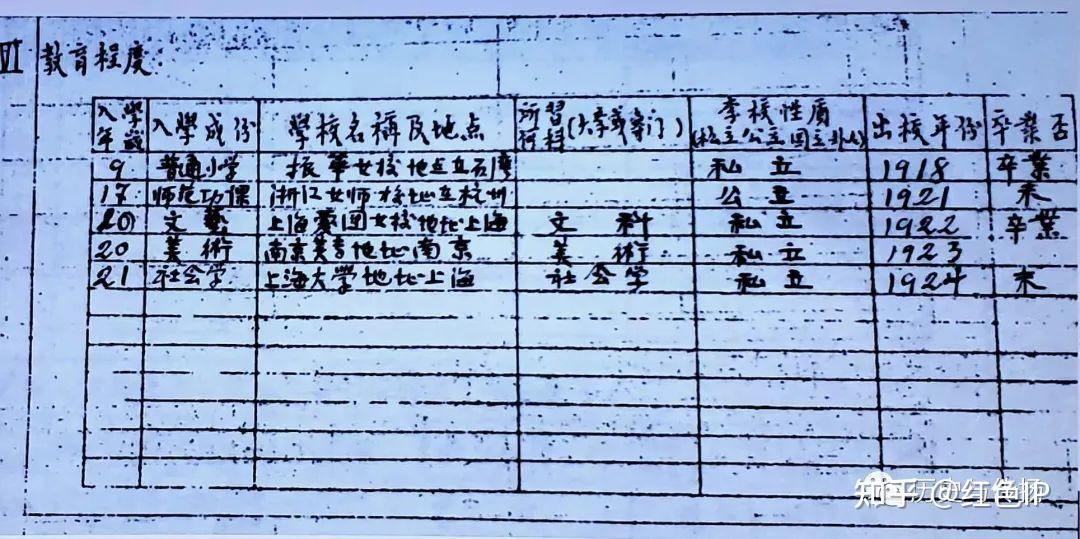 VI 教育程度
入學年歲 入學成份 學校名稱及地点 所習何科(大學或專门) 学校性质(私立公立国立外人) 出校年份 卒業否
9 普通小学 振華女校地点在石湾 私立 1918 卒業
17 师范功课 浙江女师校地在杭州 公立 1921 未
20 文藝 上海爱国女校地址上海 文科 私立 1922 卒業
20 美術 南京美专地址南京 美術 私立 1923
21 社会学 上海大学地址上海 社会学 私立 1924 未
知乎 @红色IP